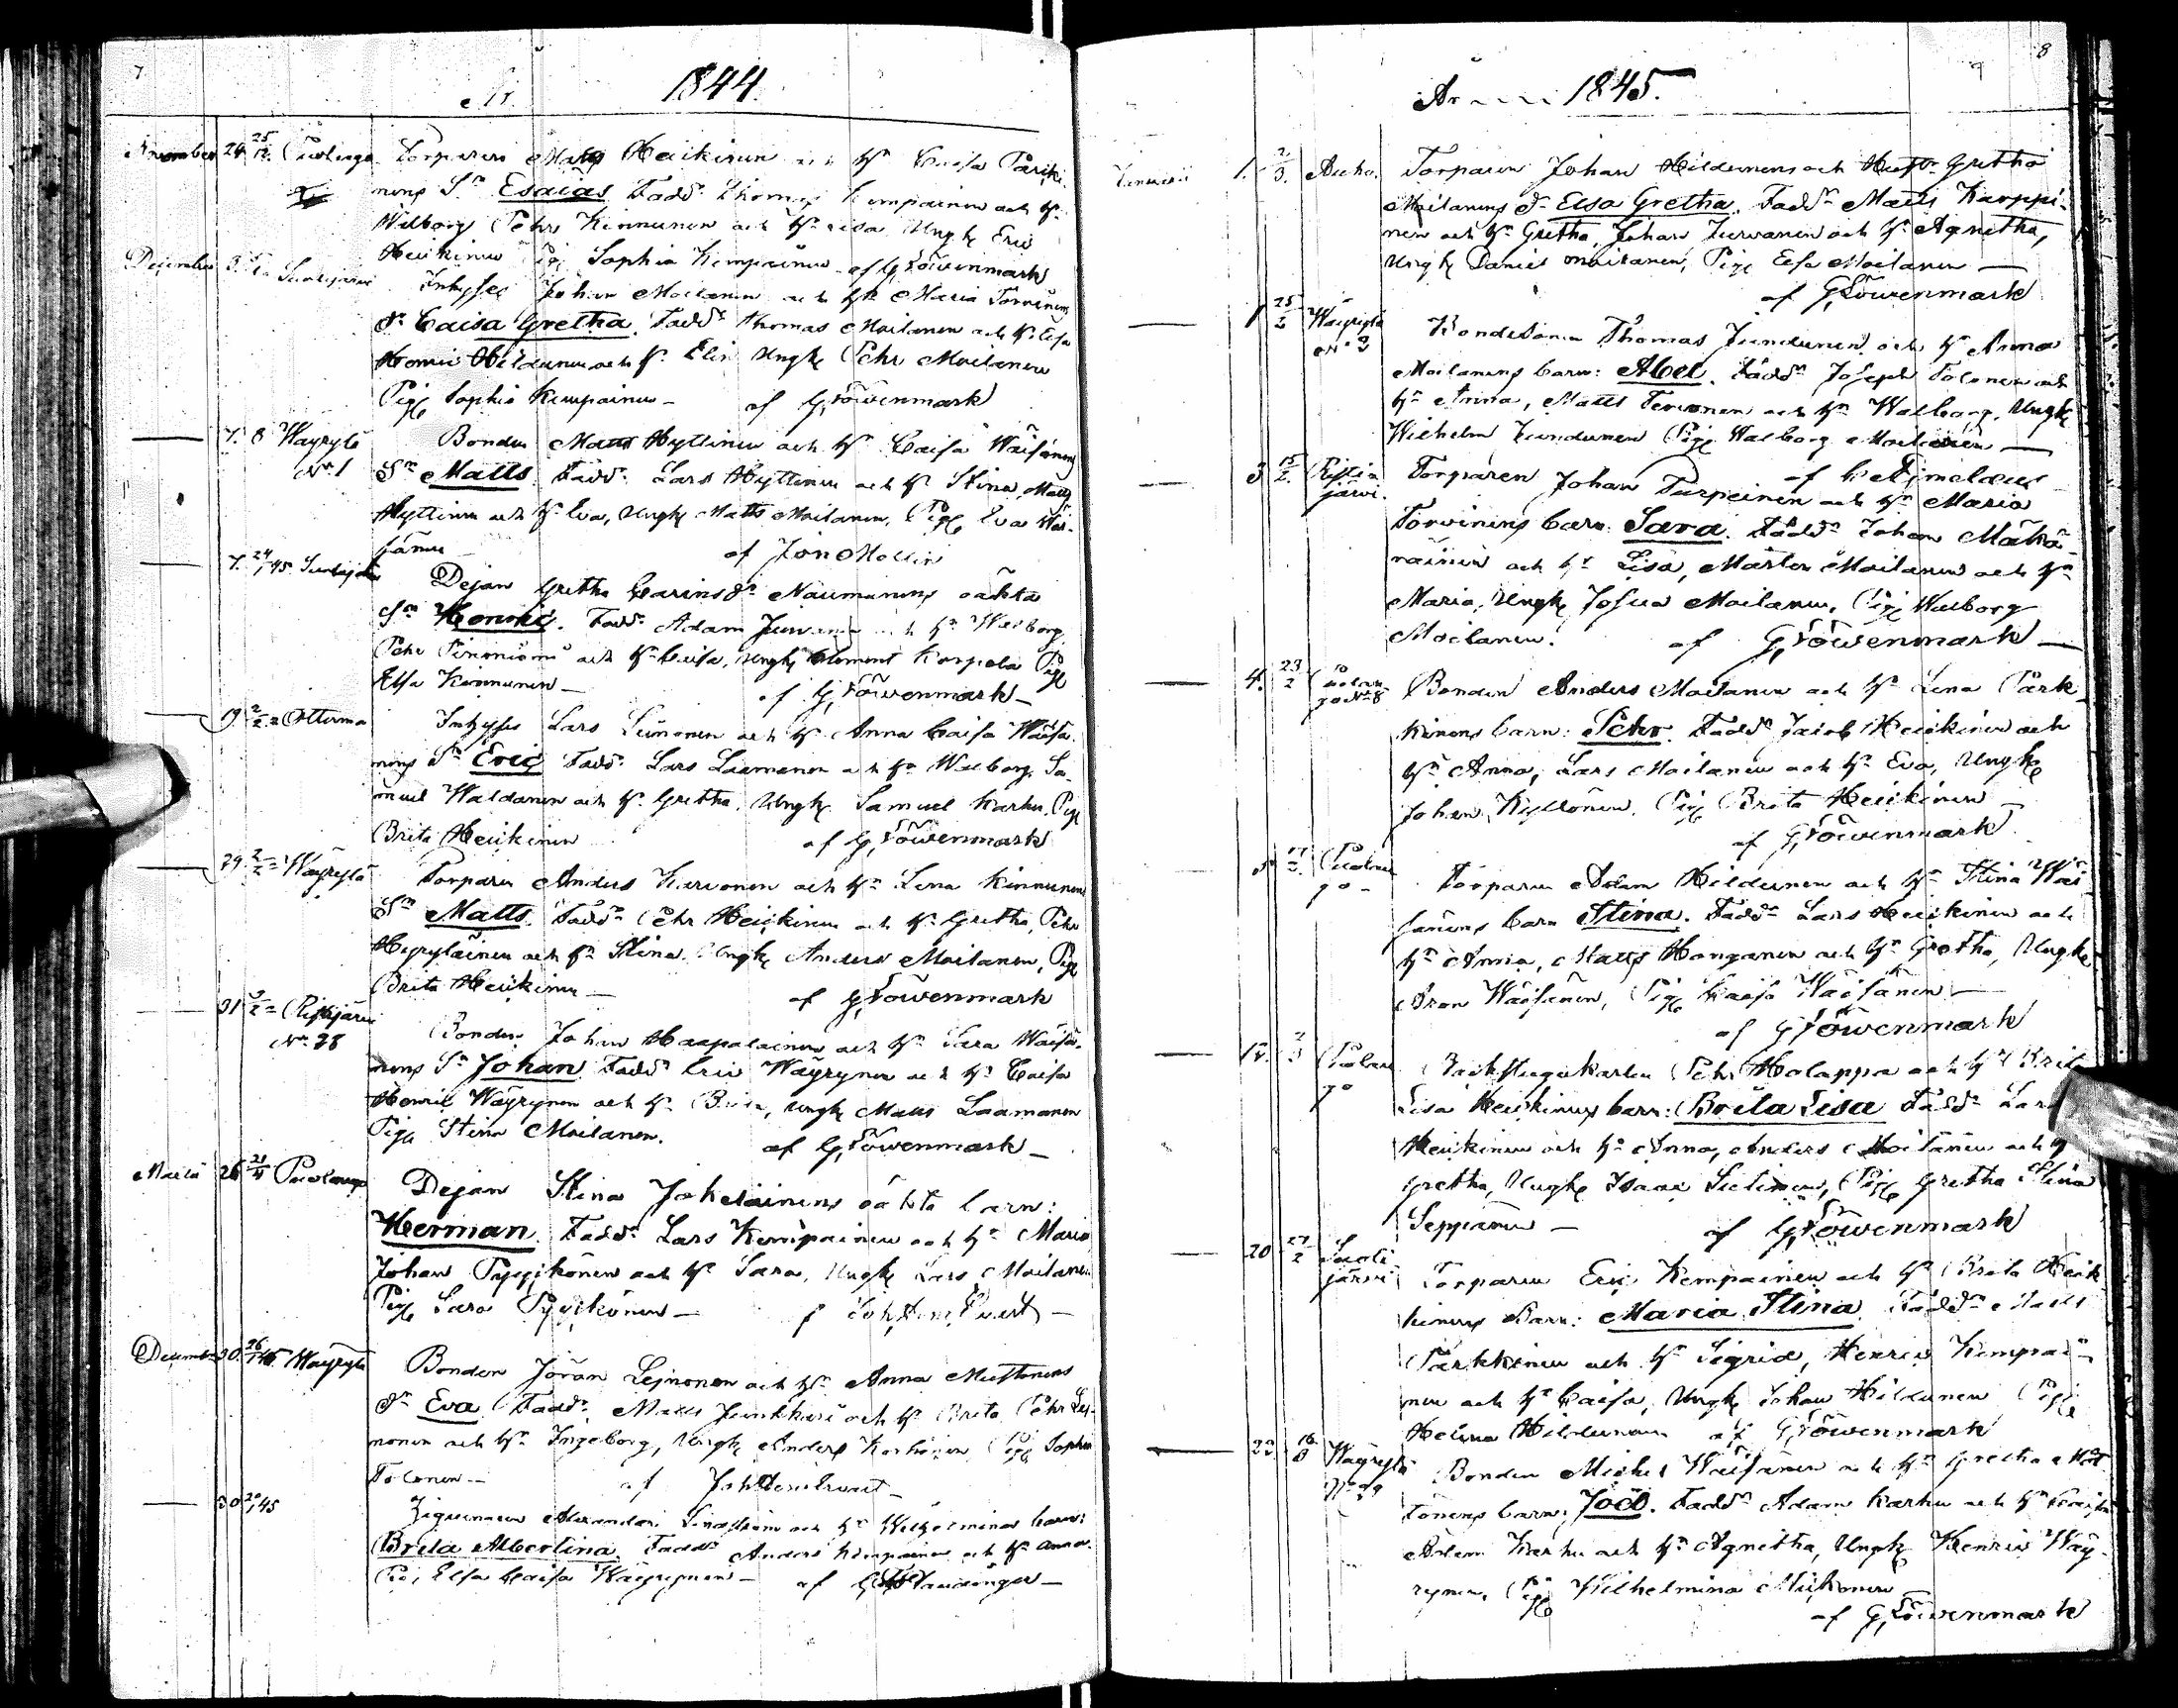 7
År 1844
November 24 25/12 Puolango Torparen Matts Heikinen och h:u Caisa Pärki-
nens S:n Esaias Fadd:r Thomas Kempainen och h:u
Walborg Pehr Kinnunen och h:u Lisa Ungk Eric
Heikinen Pig Sophia Kempainen af G Löwenmark
December Suolijärvi Inhyses Johan Moilanen och h:u Maria Törmänens
d:r Caisa Gretha. Fadd:r Thomas Moilanen och h:u Elsa
Henric Hildunen och h:u Elin Ungk Pehr Moilanen
Pig Sophia Kempainen - af G Löwenmark
7. 8 Wäyrylä Bonden Matts Hyttinen och h:u Caisa Wäisänens
N:o 1 S:n Matts. Fadd:r Lars Hyttinen och h:u Stina, Matts
Hyttinen och h:u Eva, Ungk Matts Moilanen, Pig Eva Wäi-
sänen af Jon Mollin
7. 24/1 45 Suolijärvi Dejan Gretha Carins d:r Näumanens oäkta
S:n Henric. Fadd:r Adam Juvanen och h:u Walborg
Pehr och h:u Caisa, Ungk Clement Karpela Pig
Elsa Kinnunen - af G Löwenmark -
19. 2/2 = Otterma Inhyses Lars Leinonen och h:u Anna Caisa Wäisä-
nens S:n Eric Fadd:r Lars Laamanen och h:u Walborg, Sa-
muel Waldanen och h:u Gretha, Ungk Samuel Karhu, Pig
Brita Heikinen af G Löwenmark
29. 2/2 = Wäyrylä Torparen Anders Karvonen och h:u Lena Kinnunens
S:n Matts. Fadd:r Pehr Heikinen och h:u Gretha, Pehr
Hyryläinen och h:u Stina. Ungk Anders Moilanen, Pig
Brita Heikinen - af G Löwenmark
31 3/2 = Ristijärvi Bonden Johan Haapalainen och h:u Sara Wäisä-
N:o 28 nens S:n Johan Fadd:r Eric Wäyrynen och h:u Caisa
Henric Wäyrynen och h:u Brita, Ungk Matts Laamanen
Pig Stina Moilanen. af G Löwenmark -
26 21/4 Puolango Dejan Stina Jokeläinens oäkta barn:
Herman. Fadd:r Lars Kempainen och h:u Maria
Johan Pyykönen och h:u Sara, Ungk Lars Moilanen
Pig Sara Pyykönen -
December 30. 26/1 45. Wäyrylä Bonden Jöran Leinonen och h:u Anna Mustonens
d:r Eva Fadd:r Matts Junkkari och h:u Brita Pehr Lei-
nonen och h:u Ingeborg, Ungk Anders Korhonen, Pig Sophia
Tolonen - af
30 20/1 45 Zigenaren Alexander Lindström och h:u Wilhelmina barn:
Brita Albertina Fadd:r Anders Kempainen och h:u Anna.
Pig, Elsa Caisa Wäyrynen - af
8
År 1845.
Januarii 1. 2/3. Aucho. Torparen Johan Hildunens och Hust:r Gretha
Moilanens d:r Elsa Gretha. Fadd:r Matts Karppi-
nen och h:u Gretha, Johan Juvanen och h:u Agnetha,
Ungk Daniel Moilanen, Pig Elsa Moilanen -
af G Löwenmark
1 25/2 Wäyrylä Bondesonen Thomas Jundunen och h:u Anna
N:o 3 Moilanens barn: Abel. Fadd:r Joseph Tolonen och
h:u Anna, Matts Tervonen och h:u Walborg. Ungk
Wilhelm Jundunen Pig Walborg Moilanen -
af C Aejmelaeus
3 15/2. Ristijärvi. Torparen Johan Purpeinen och h:u Maria
Torvinens barn Sara. Fadd:r Johan Mäkä-
räinen och h:u Lisa, Mårten Moilanen och h:u
Maria, Ungk Josua Moilanen, Pig Walborg
Moilanen. af G Löwenmark -
4. 23/2 Puolango N:o 8 Bonden Anders Moilanen och h:u Lena Pärk-
kinens barn: Pehr. Fadd:r Jacob Heikinen och
h:u Anna, Lars Moilanen och h:u Eva, Ungk
Johan Kyllönen. Pig Brita Heikinen -
af G Löwenmark
Puolango - Torparen Adam Hildunen och h:u Stina Wäi-
sänens barn Stina. Fadd:r Lars Heikinen och
h:u Anna, Matts Honganen och h:u Gretha, Ungk
Aron Wäisänen, Pig Kaisa Wäisänen -
af G Löwenmark
12. 2/3 Puolango Backstugukarlen Pehr Holappa och h:u Brita
Lisa Heikinens barn: Brita Lisa Fadd:r Lars
Heikinen och h:u Anna, Anders Moilanen och h
Gretha, Ungk Isaac Pig Gretha Stina
Seppänen - af G Löwenmark
20 27/2 Suolijärvi Torparen Eric Kempainen och h:u Brita Heik-
kinens Barn: Maria Stina Fadd:r Matts
Pärkkinen och h:u Sigrid, Henric Kempai-
nen och h:u Caisa, Ungk Johan Hildunen Pig
Helena Hildunen af G Löwenmark
22. 16/ Wäyrylä Bonden Michel Wäisänen och h:u Gretha Mat-
tonens barn: Joel. Fadd:r Adam Karhu och h:u Caisa
Adam Karhu och h:u Agnetha, Ungk Henric Wäy-
rynen, Pig Wilhelmina
af G Löwenmark